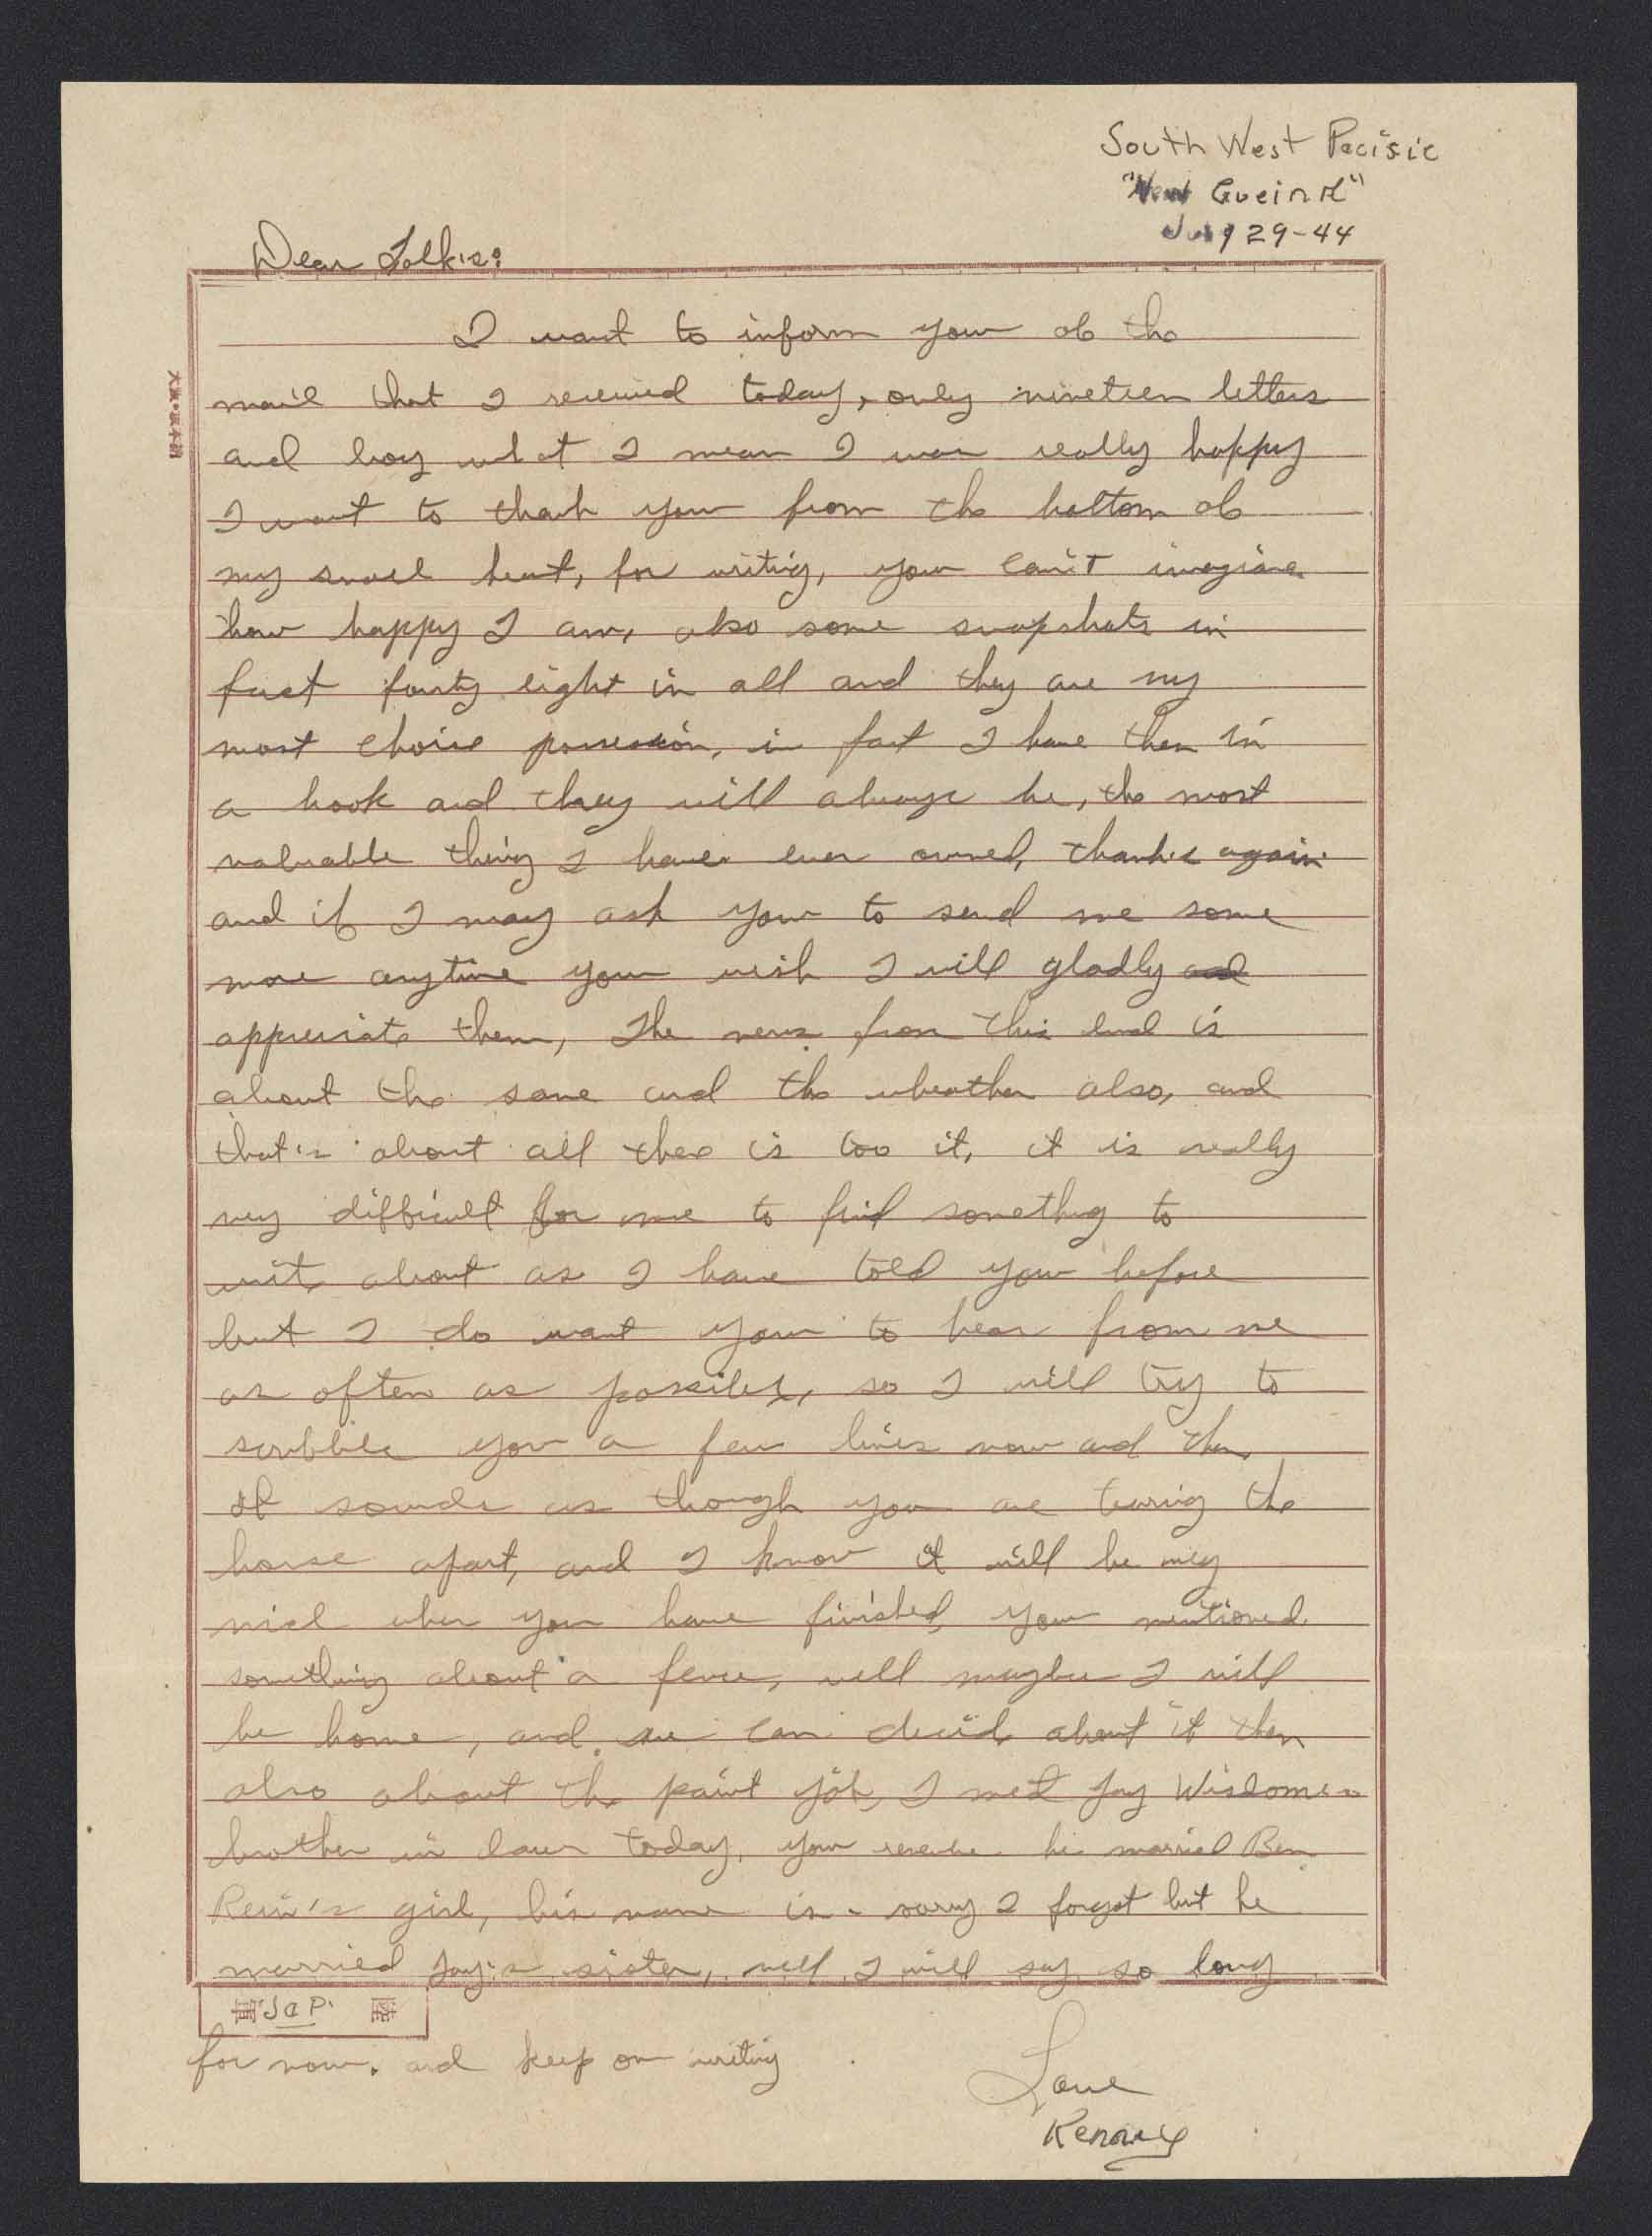 South West Pacific
"New Gueina"
July 29-44
Dear Folk's:
I want to inform you of the
mail that I received today, only nineteen letters
and boy what I mean I was really happy
I want to thank you from the bottom of
my small heart, for writing, your can't imagine
how happy I am, also some snapshots in
fact fourty eight in all and they are my
most choise possession, in fact I have them in
a book and they will always be, the most
valuable thing I have ever owned, thank's again
and if I may ask you to send me some
more anytime you wish I will gladly
appreciate them, The news from this end is
about the same and the wheather also, and
that's about all there is too it, it is really
very difficult for me to find something to
write about as I have told you before
but I do want you to hear from me
as often as possible, so I will try to
scribble you a few lines now and then
it sounds as though you are tearing the
house apart, and I know it will be very
nice when you have finished, you mentioned
something about a fence, well maybe I will
be home, and we can decide about it then
also about the paint job, I met Jay Wisdom's
brother in law today, you he married Ben
girl, his name is - sorry I forgot but he
married Jay's sister, well I will say so long
Jap.
for now. and keep on writing
Love
Kenny